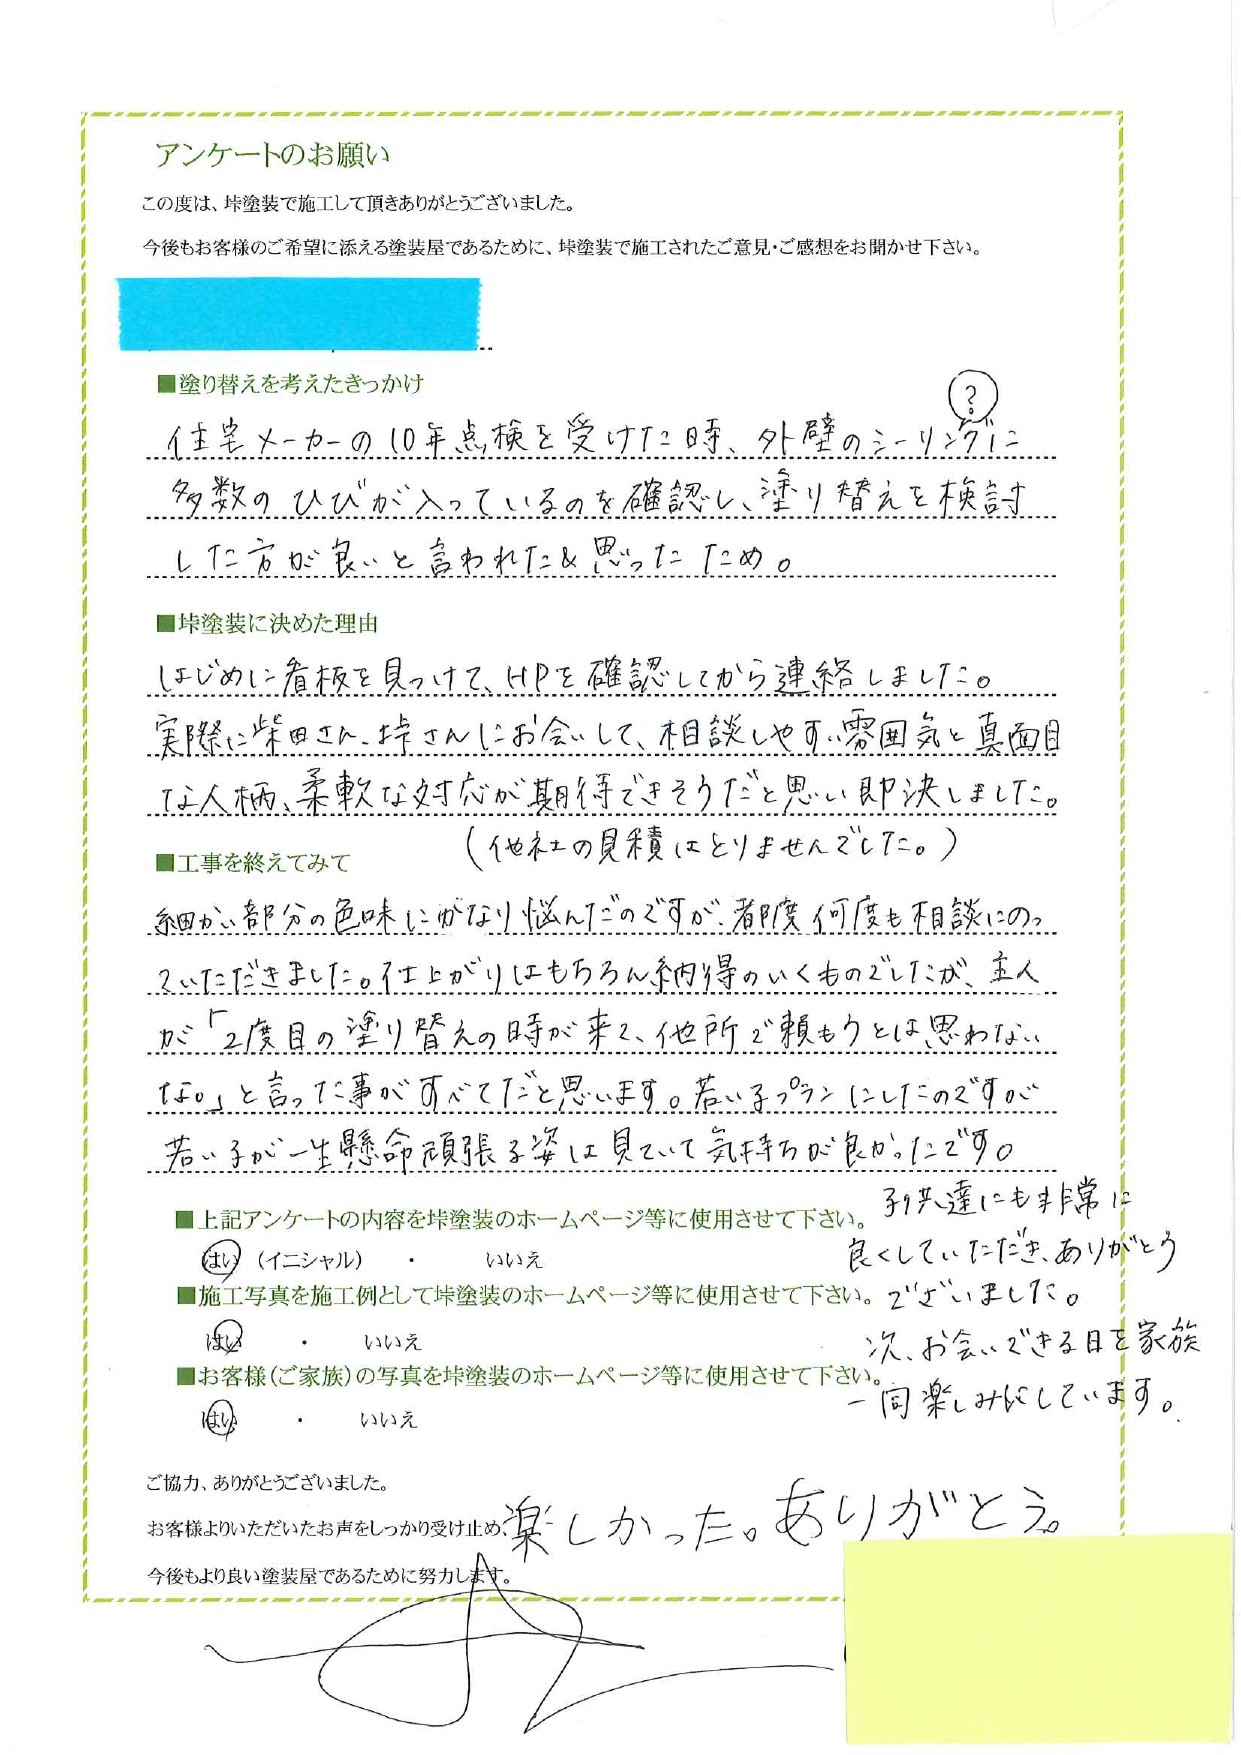 アンケートのお願い
この度は、垰塗装で施工して頂きありがとうございました。
今後もお客様のご希望に添える塗装屋であるために、垰塗装で施工されたご意見・ご感想をお聞かせ下さい。
■塗り替えを考えたきっかけ
?
住宅メーカーの10年点検を受けた時、外壁のシーリングに
多数のひびが入っているのを確認し、塗り替えを検討
した方が良いと言われた&思ったため。
■垰塗装に決めた理由
はじめに看板を見つけて、HPを確認してから連絡しました。
実際に柴田さん、垰さんにお会いして、相談しやすい雰囲気と真面目
な人柄、柔軟な対応が期待できそうだと思い即決しました。
(他社の見積はとりませんでした。)
■工事を終えてみて
細かい部分の色味にかなり悩んだのですが、都度何度も相談にのっ
ていただきました。仕上がりはもちろん納得のいくものでしたが、主人
が「2度目の塗り替えの時が来て、他所で頼もうとは思わない
な。」と言った事がすべてだと思います。若い子プランにしたのですが
若い子が一生懸命頑張る姿は見ていて気持ちが良かったです。
子供達にも非常に
良くしていただき、ありがとう
ございました。
次、お会いできる日を家族
一同楽しみにしています。
■上記アンケートの内容を垰塗装のホームページ等に使用させて下さい。
はい (イニシャル) ・ いいえ
■施工写真を施工例として垰塗装のホームページ等に使用させて下さい。
はい ・ いいえ
■お客様(ご家族)の写真を垰塗装のホームページ等に使用させて下さい。
はい ・ いいえ
ご協力、ありがとうございました。
お客様よりいただいたお声をしっかり受け止め、
今後もより良い塗装屋であるために努力します。
楽しかった。ありがとう。